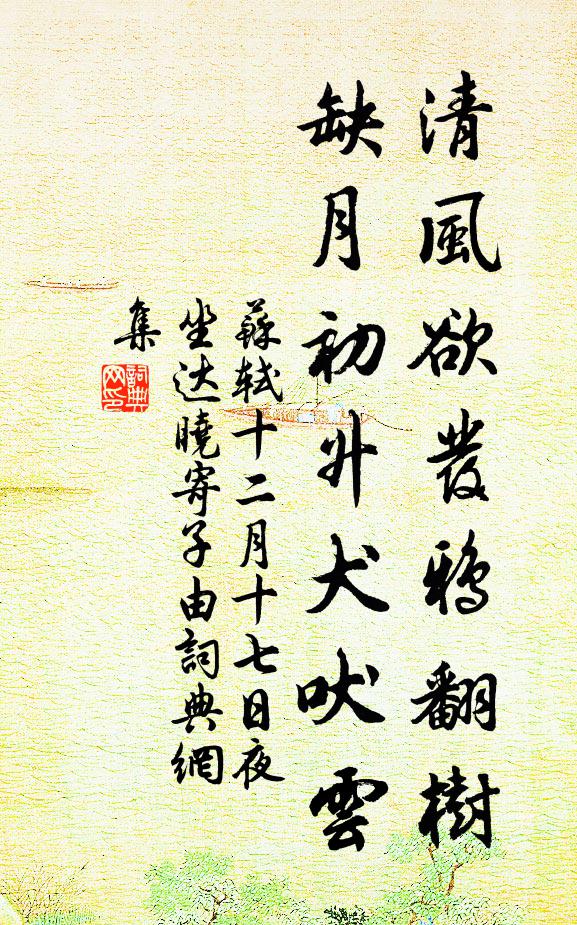 清風欲發鴉翻樹
缺月初升犬吠雲
蘇軾十二月十七日夜
坐达曉寄子由詞典網
集
詞典
网印